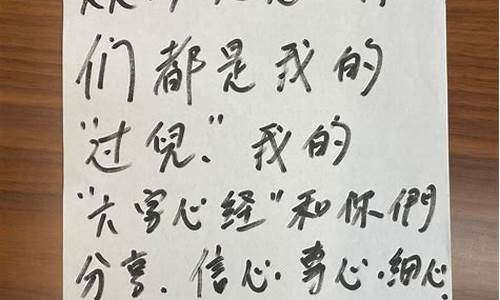 们都是我的
"过兒". 我的
"六字心经"和你們
分享. 信心. 專心. 細心.